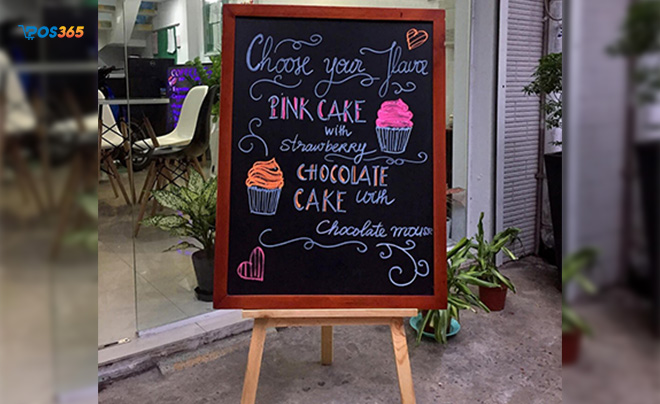 POS365
Choose your flavor
PINK CAKE
with
strawberry
CHOCOLATE
CAKE with
Chocolate mouse